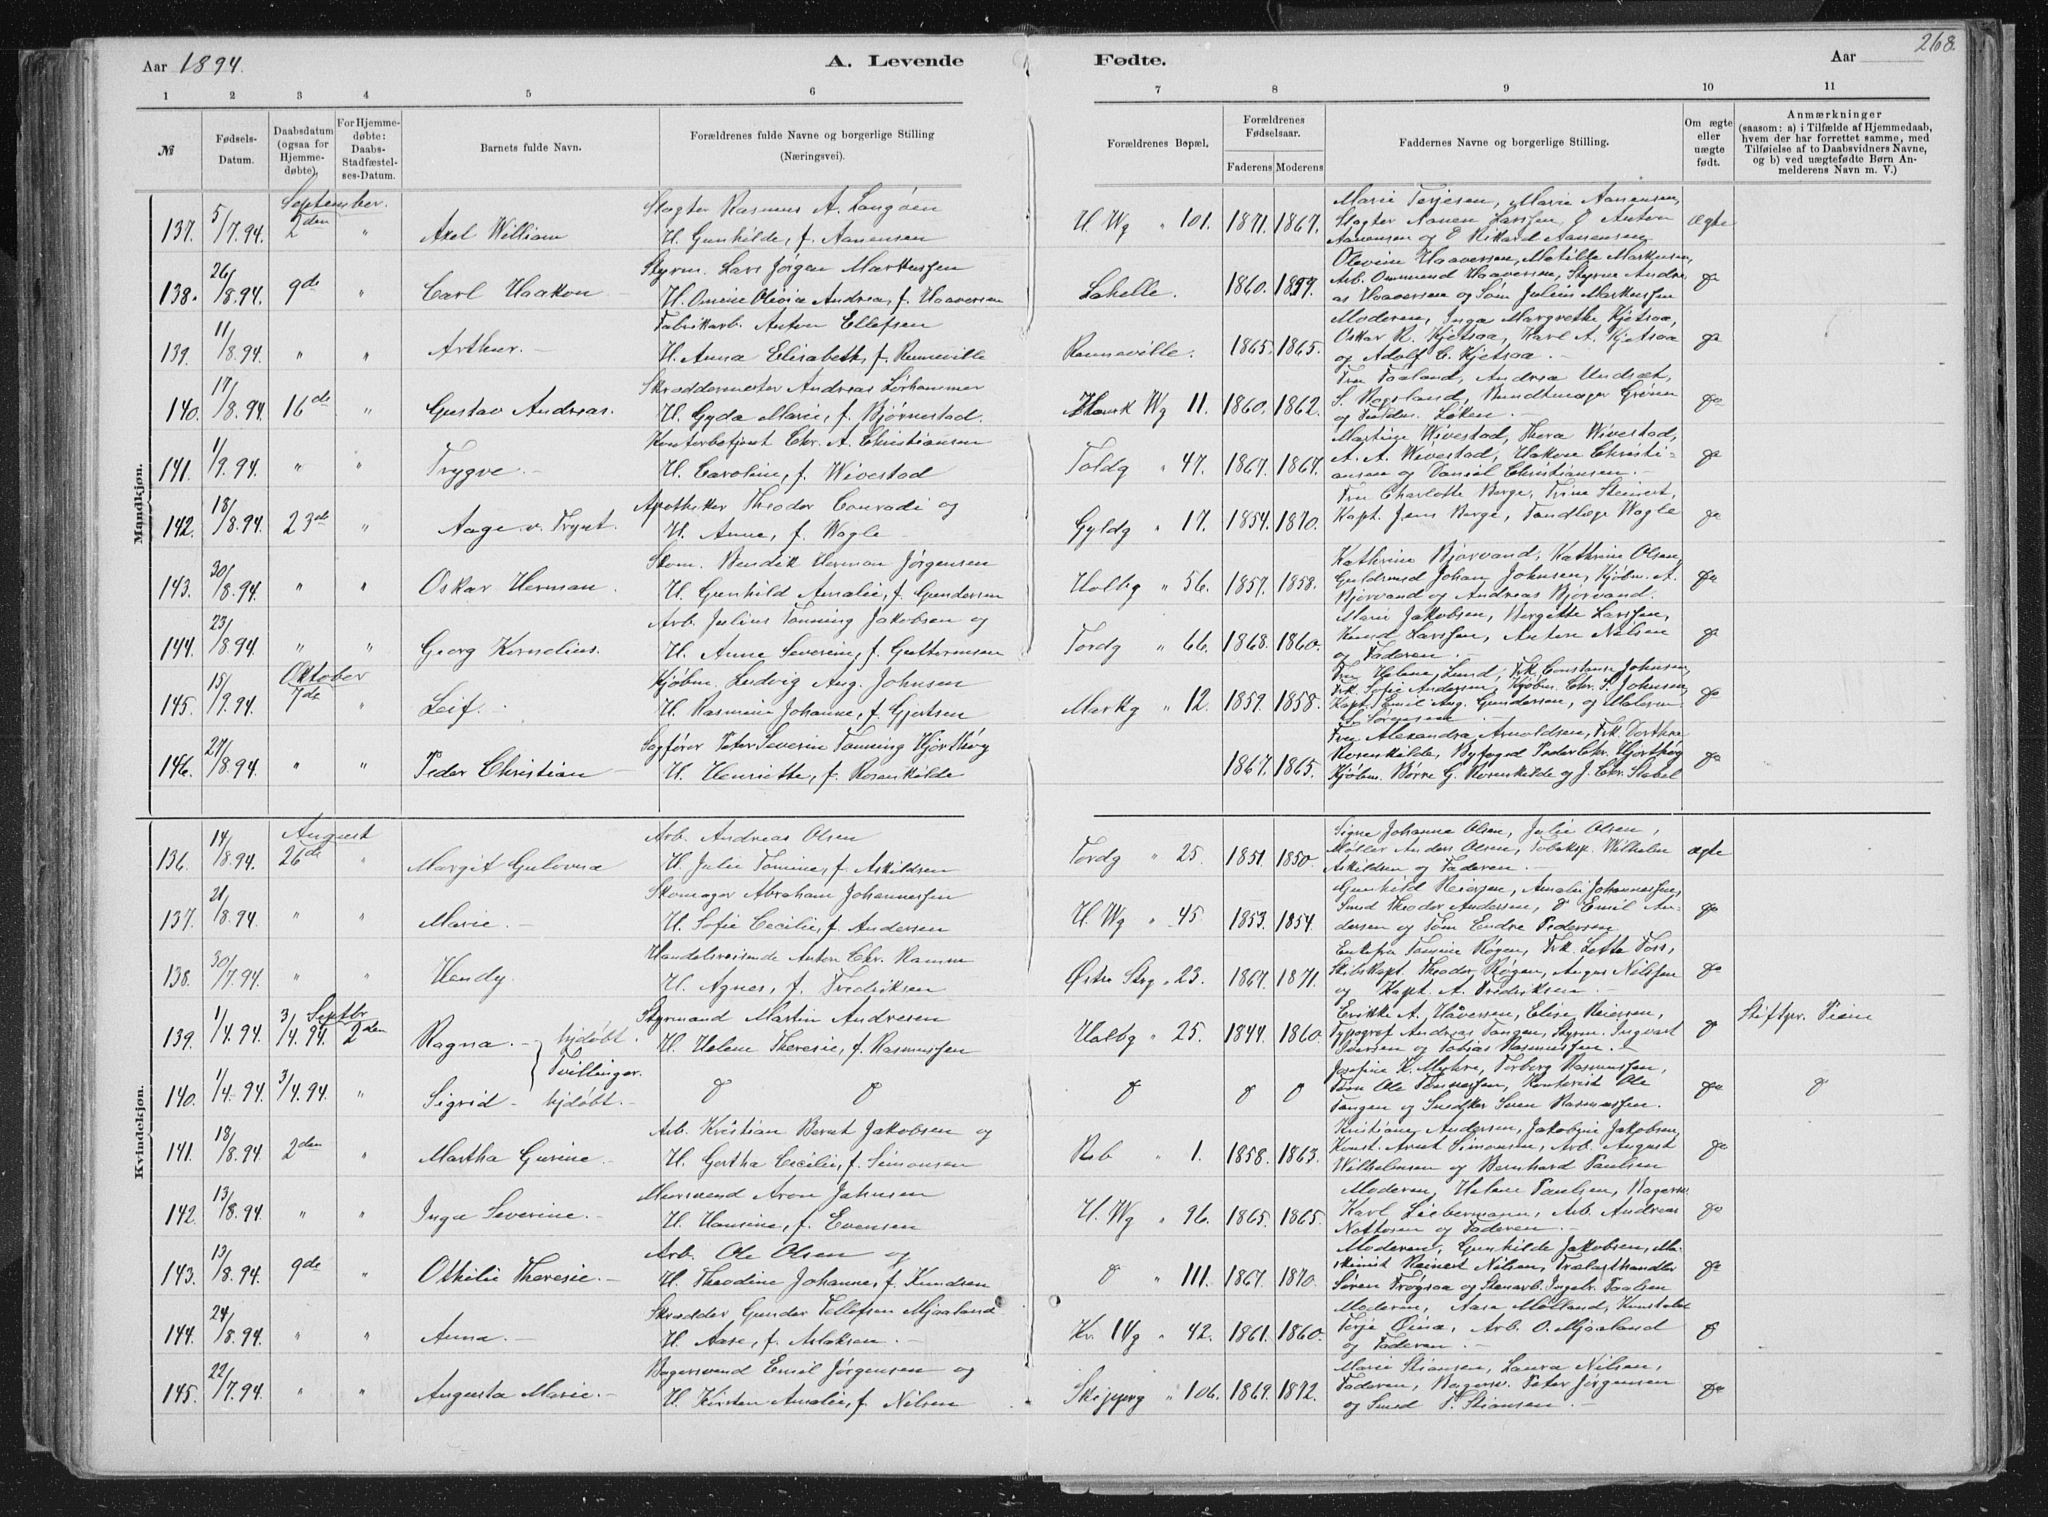 268.
Aar 1894. A. Levende Fødte. Aar
1 2 3 4 5 6 7 8 9 10 11
№ Fødsels-Datum. Daabsdatum (ogsaa for Hjemmedøbte). For Hjemmedøbte: Daabs-Stadfæstelses-Datum. Barnets fulde Navn. Forældrenes fulde Navne og borgerlige Stilling (Næringsvei). Forældrenes Bopæl. Forældrenes Fødselsaar. Faderens Moderens Faddernes Navne og borgerlige Stilling. Om ægte eller uægte født. Anmærkninger (saasom: a) i Tilfælde af Hjemmedaab, hvem der har forrettet samme, med Tilføielse af to Daabsvidners Navne, og b) ved uægtefødte Børn Anmelderens Navn m. V.)
Mandkjøn.
September.
Slagter Rasmus A. Langøen
Marie Terjesen, Marie Aanensen,
137. 5/7.94. 2den " Axel William H. Gunhilde, f. Aanensen H. Wg " 101. 1871. 1867. Slagter Aanen Larssen, Anton ægte
Aanensen og Rikard Aanensen
Styrm. Lars Jørgen Markussen
Olevine Haaversen, Matilde Markusen,
138. 26/8.94. 9de " Carl Haakon H. Omine Olivia Andrea, f. Haaversen Lahelle. 1860. Arb. Ommund Haaversen, Styrm. Andreas Haaversen og Søm. Julius Markussen do
Fabrikarb. Anton Ellefsen
Moderen, Inga Margrethe Kjetsaa,
139. 11/8.94. " " Arthur. H. Anna Elisabeth, f. Renneville Renneville. 1865. 1865. Oskar R. Kjetsaa, Karl A. Kjetsaa do
og Adolf C. Kjetsaa.
Skræddermester Andreas Lørhammer
Fru Faaland, Andrea Undsæt,
140. 17/8.94. 16de " Gustav Andreas. H. Gyda Marie, f. Bjørnestad. Wg 11. 1860. 1862. Bundtmager Grønn do
Kontorbetjent Chr. A. Christiansen
Martine Wivestad, Thora Wivestad,
141. 1/9.94. " " Trygve. H. Caroline, f. Wivestad Toldg " 47. 1867. 1867. A. A. Wivestad, Hakon Christiansen og Daniel Christiansen. do
Apotheker Theodor Conradi og
Fru Charlotte Borge, Trine Steinert,
142. 18/8.94. 23de " Aage v. Trynt. H. Anne, f. Wagle Gyldg " 17. 1854. 1870. Kapt. Jens Borge, Tandlæge Wagle do
Skom. Bendik Herman Jørgensen
Kathrine Bjorvand, Kathrine Olsen,
143. 30/8.94. " " Oskar Herman. H. Gunhild Amalie, f. Gundersen Holbg " 56. 1857. 1858. Guldsmed Johan Johnsen, Kjøbm. A. do
Bjorvand og Andreas Bjorvand.
Arb. Julius Tønning Jakobsen og
Marie Jakobsen, Bergitte Larssen,
144. 23/8.94. " " Georg Kornelius. H. Anne Severine, f. Guttormsen Tordg " 66. 1868. 1860. Knud Larssen, Anton Nilsen do
og Faderen.
Oktober
Kjøbm. Ludvig Aug. Johnsen
Fru Helene Lund, Frk. Constanse Johnsen,
145. 15/9.94. 7de " Leif. H. Rasmine Johanne, f. Gjertsen Markg " 12. 1859. 1858. Frk. Sofie Andersen, Kjøbm. Chr. S. Johnsen, do
Kapt. Emil Aug. Gundersen, og Maleren
L. Sørensen
Sagfører Peter Severin Tønning Hjorthøy
Fru Alexandra Arnoldsen, Frk. Dorthea
146. 27/8.94. " " Peder Christian H. Henriette, f. Rosenkilde 1867. 1865. Rosenkilde, Byfoged Peder Chr. Hjorthøy do
Kjøbm. Børre G. Rosenkilde og J. Chr. Stabel
Kvindekjøn.
August
Arb. Andreas Olsen
Signe Johanne Olsen, Julie Olsen,
136. 14/8.94. 26de " Margit Gulovna H. Julie Tomine, f. Askildsen Tordg " 25. 1851. 1850. Møller Anders Olsen, Tobaksp. Wilhelm ægte
Askildsen og Faderen.
Skomager Abraham Johannessen
Gunhild Reiersen, Amalie Johannessen,
137. 21/8.94. " " Marie. H. Sofie Cecilie, f. Andersen H. Wg " 45. 1853. 1854. Smed Theodor Andersen, Emil Andersen og Tøm. Endre Pedersen do
Handelsreisende Anton Chr. Ramm
Enkefru Tomine Røgen, Frk. Letta Foss,
138. 30/7.94. " " Hendy. H. Agnes, f. Fredriksen Østre Strg " 23. 1867. 1871. Skibskapt. Theodor Røgen, August Nilssen do
og Kapt. A. Fredriksen.
Septbr
Styrmand Martin Andresen
Erikke A. Håversen, Elise Reiersen,
139. 1/4.94. 3/4.94. 2den Ragna. hjdøbt. H. Helene Theresie, f. Rasmussen Holbg " 25. 1844. 1860. Typograf Andreas Tangen, Styrm. Ingvart do Stiftspr. Piene
Iversen og Tobias Rasmussen.
Tvillinger.
Josefine K. Myhre, Torborg Rasmussen,
140. 1/4.94. 3/4.94. " Sigrid hjdøbt. do do do do do Tøm Ole Tønnessen, Kontorist Ole do do
Tangen og Snedker Søren Rasmussen.
Arb. Kristian Bernt Jakobsen og
Kristiane Andersen, Jakobine Jakobsen,
141. 18/8.94. 2den " Martha Gurine. H. Gertha Cecilie, f. Simonsen Reb " 1. 1858. 1863. Konst. Arnt Simonsen, Arb. August do
Wilhelmsen og Bernhard Paulsen
Mursvend Aron Johnsen
Moderen, Helene Paulsen, Bagersv.
142. 13/8.94. " " Inga Severine. H. Hansine, f. Evensen H. Wg " 96. 1865. 1865. Karl Liebermann, Arb. Andreas do
Nottosen og Faderen.
Arb. Ole Olsen og
Moderen, Gunhilde Jakobsen, Maskinist Reinert Nilsen, Trælasthandler
143. 13/8.94. 9de " Othilie Theresie. H. Theodine Johanne, f. Knudsen do " 111. 1867. 1870. Søren Frøysaa og Stenarb. Ingebr. Paalsen do
Skrædder Gunder Tellefsen Mjaaland
Moderen, Aase Mølland, Konstabel
144. 24/8.94. " " Anna. H. Aase, f. Aslaksen. Kr. IVg " 42. 1861. 1860. Terje Øina, Arb. O. Mjaaland do
og Faderen.
Bagersvend Emil Jørgensen og
Marie Stiansen, Laura Nilsen,
145. 22/7.94. " " Augusta Marie. H. Kirsten Amalie, f. Nilsen Skippeng " 106. 1869. 1872. Faderen, Bagersv. Peter Jørgensen do
og Smed P. Stiansen.